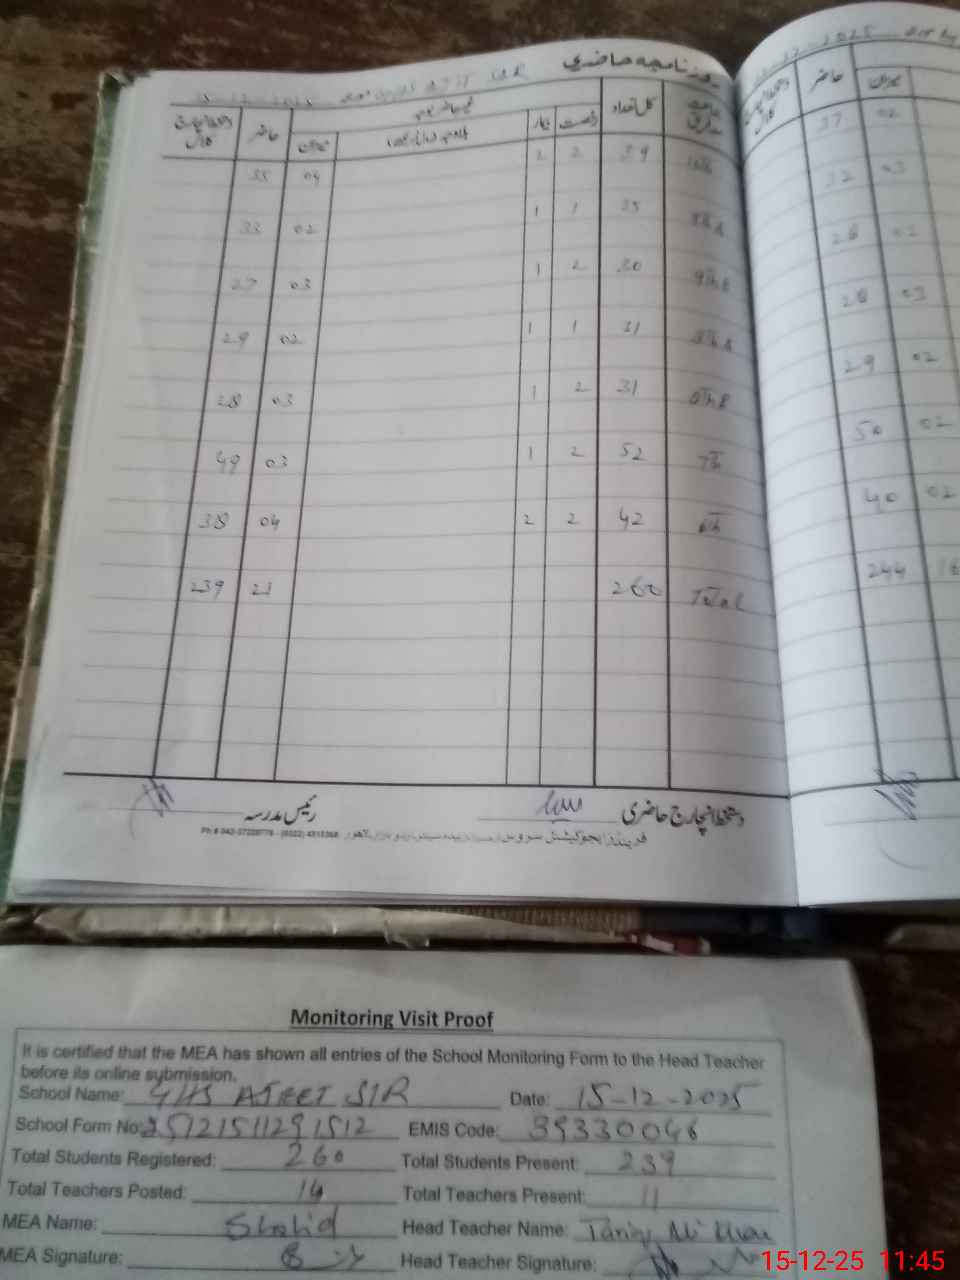 روزنامچہ حاضری
15-12-2025
جماعت کل تعداد رخصت بیمار میزان حاضر
10th 39 2 2 04 35
35 1 1 02 33
9th B 30 2 1 03 27
8th A 31 1 1 02 29
8th B 31 2 1 03 28
7th 52 2 1 03 49
6th 42 2 2 04 38
Total 260 21 239
دستخط انچارج حاضری رئیس مدرسہ
حاضر میزان
37 02
32 03
28 02
28 03
29 02
50 02
40 02
244 16
Monitoring Visit Proof
It is certified that the MEA has shown all entries of the School Monitoring Form to the Head Teacher
before its online submission.
School Name: GHS AJEET SIR Date: 15-12-2025
School Form No: EMIS Code: 39330046
Total Students Registered: 260 Total Students Present: 239
Total Teachers Posted: 14 Total Teachers Present: 11
MEA Name: Shahid Head Teacher Name: Tariq Ali
MEA Signature: Head Teacher Signature:
15-12-25 11:45